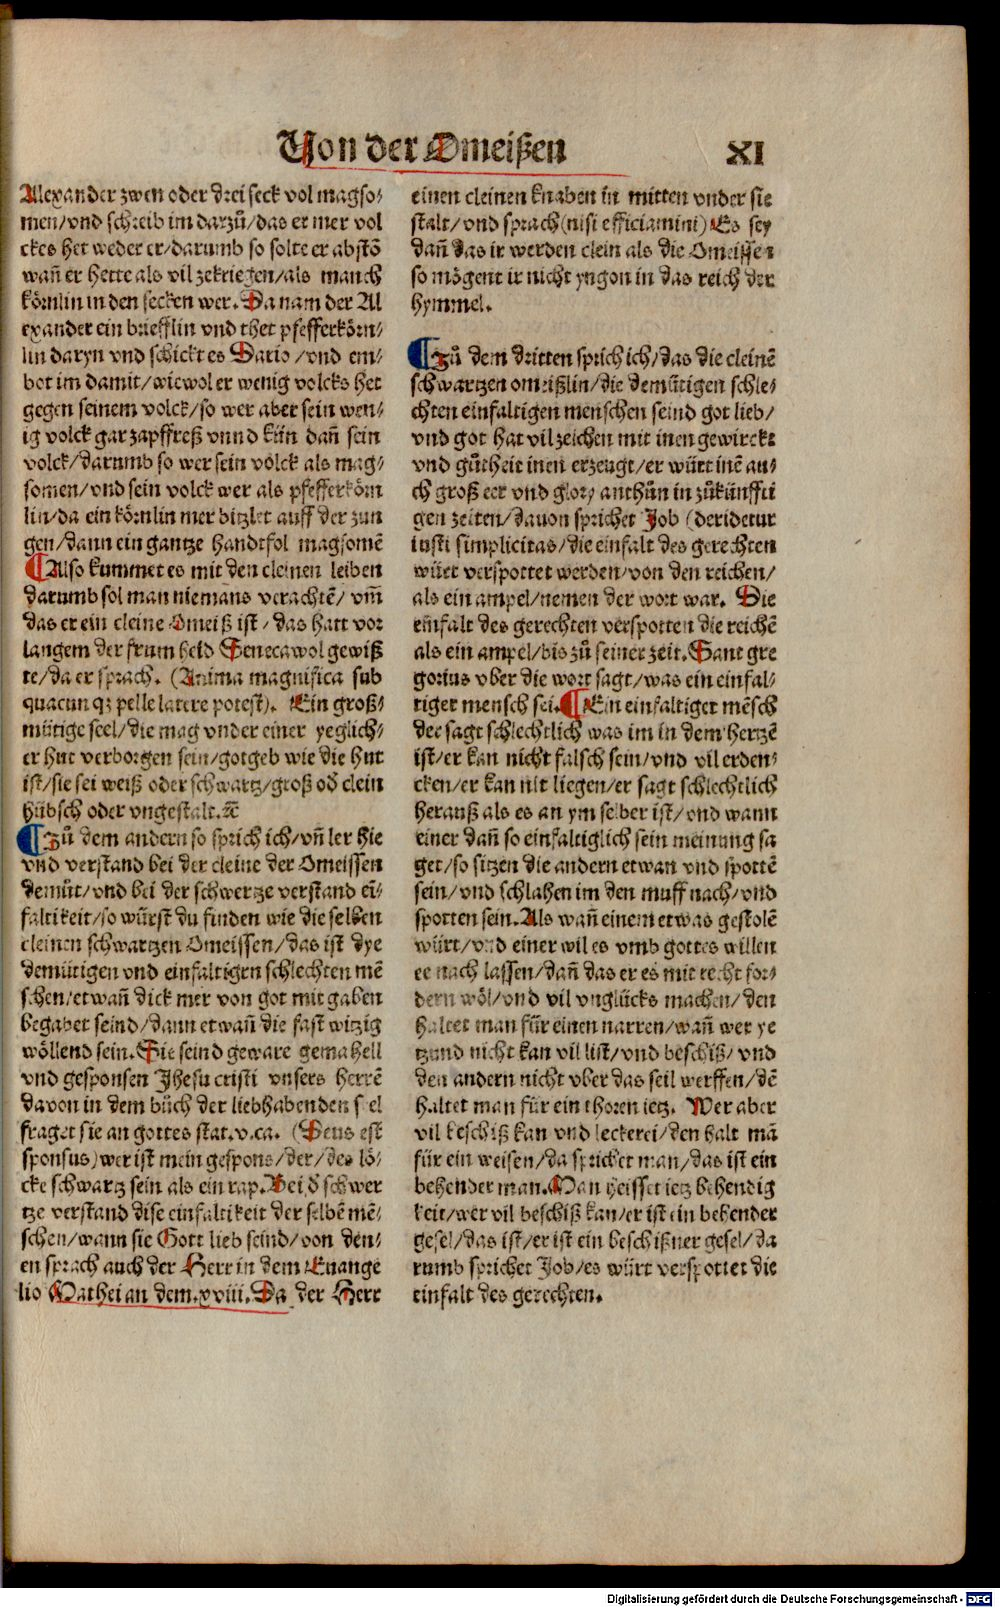 Von der Omeißen
XI
Alexander zwen oder drei seck vol magso⸗
men/vnd schreib im darzů/das er mer vol
ckes het weder er/darumb so solte er abstō
wañ er hette als vil zekriegen/als manch
körnlin in den secken wer. Da nam der Al
exander ein briefflin vnd thet pfefferkörn⸗
lin daryn vnd schickt es Dario/vnd em⸗
bot im damit/wiewol er wenig volcks het
gegen seinem volck/so wer aber sein wen⸗
ig volck gar zapffreß vnnd kün dañ sein
volck/darumb so wer sein völck als mag⸗
somen/vnd sein volck wer als pfefferköm
lin/da ein körnlin mer bitzlet auff der zun
gen/dann ein gantze handtfol magsomē
¶Also kummet es mit den cleinen leiben
darumb sol man niemans verachtē/ vm̄
das er ein cleine Omeiß ist/das hatt vor
langem der frum held Seneca wol gewiß
te/da er sprach. (Anima magnifica sub
quacun qꝫ pelle latere potest). Ein groß⸗
mütige seel/die mag vnder einer yeglich⸗
er hut verborgen sein/gotgeb wie die hut
ist/sie sei weiß oder schwartz/groß od̄ clein
hübsch oder vngestalt.ꝛc̄
¶Zů dem andern so sprich ich/vn̄ ler hie
vnd verstand bei der cleine der Omeissen
demůt/vnd bei der schwertze verstand ei⸗
faltikeit/so würst du finden wie die selben
cleinen schwartzen Omeissen/das ist dye
demütigen vnd einfaltigen schlechten mē
schen/etwañ dick mer von got mit gaben
begabet seind/dann etwañ die fast witzig
wöllend sein. Sie seind geware gemahell
vnd gesponsen Jhesu cristi vnsers herrē
davon in dem bůch der liebhabenden sel
fraget sie an gottes stat.v.ca. (Deus est
sponsus) wer ist mein gespons/der/des lö⸗
cke schwartz sein als ein rap. Bei d̄ schwer
tze verstand dise einfaltikeit der selbē mē⸗
schen/wann sie Gott lieb seind/von den⸗
en sprach auch der Herr in dem Euange
lio Mathei an dem.xviii. Da der Herr
einen cleinen knaben in mitten vnder sie
stalt/vnd sprach(nisi efficiamini) Es sey
dañ das ir werden clein als die Omeissen
so mögent ir nicht yngon in das reich der
hymmel.
¶Zů dem dritten sprich ich/das die cleinē
schwartzen omeißlin/die demütigen schle⸗
chten einfaltigen menschen seind got lieb/
vnd got hat vil zeichen mit inen gewirckt
vnd gůtheit inen erzeugt/er würt inē au⸗
ch groß eer vnd glory anthůn in zůkünffti
gen zeiten/davon sprichet Job (deridetur
iusti simplicitas/die einfalt des gerechten
würt verspottet werden/von den reichen/
als ein ampel/nemen der wort war. Die
einfalt des gerechten verspotten die reichē
als ein ampel/bis zů seiner zeit. Sant gre
gorius vber die wort sagt/was ein einfal⸗
tiger mensch sei. ¶Ein einfaltiger mēsch
der sagt schlechtlich was im in dem hertzē
ist/er kan nicht falsch sein/vnd vil erden⸗
cken/er kan nit liegen/er sagt schlechtlich
herauß als es an ym selber ist/vnd wann
einer dañ so einfaltiglich sein meinung sa
get/so sitzen die andern etwan vnd spottē
sein/vnd schlahen im den muff nach/vnd
spotten sein. Als wañ einem etwas gestolē
würt/vnd einer wil es vmb gottes willen
ee nach lassen/dañ das er es mit recht for⸗
dern wöl/vnd vil vnglücks machen/den
haltet man für einen narren/wañ wer ye
tzund nicht kan vil list/vnd beschiß/vnd
den andern nicht vber das seil werffen/dē
haltet man für ein thoren ietz. Wer aber
vil beschiß kan vnd leckerei/den halt mā
für ein weisen/da sprichet man/das ist ein
behender man. Man heisset ietz behendig
keit/wer vil beschiß kan/er ist ein behender
gesel/das ist/er ist ein beschißner gesel/da
rumb sprichet Job/es würt verspottet die
einfalt des gerechten.
Digitalisierung gefördert durch die Deutsche Forschungsgemeinschaft - DFG